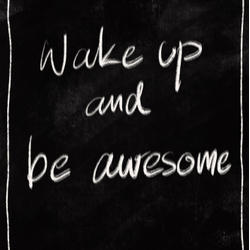 Wake up
and
be awesome